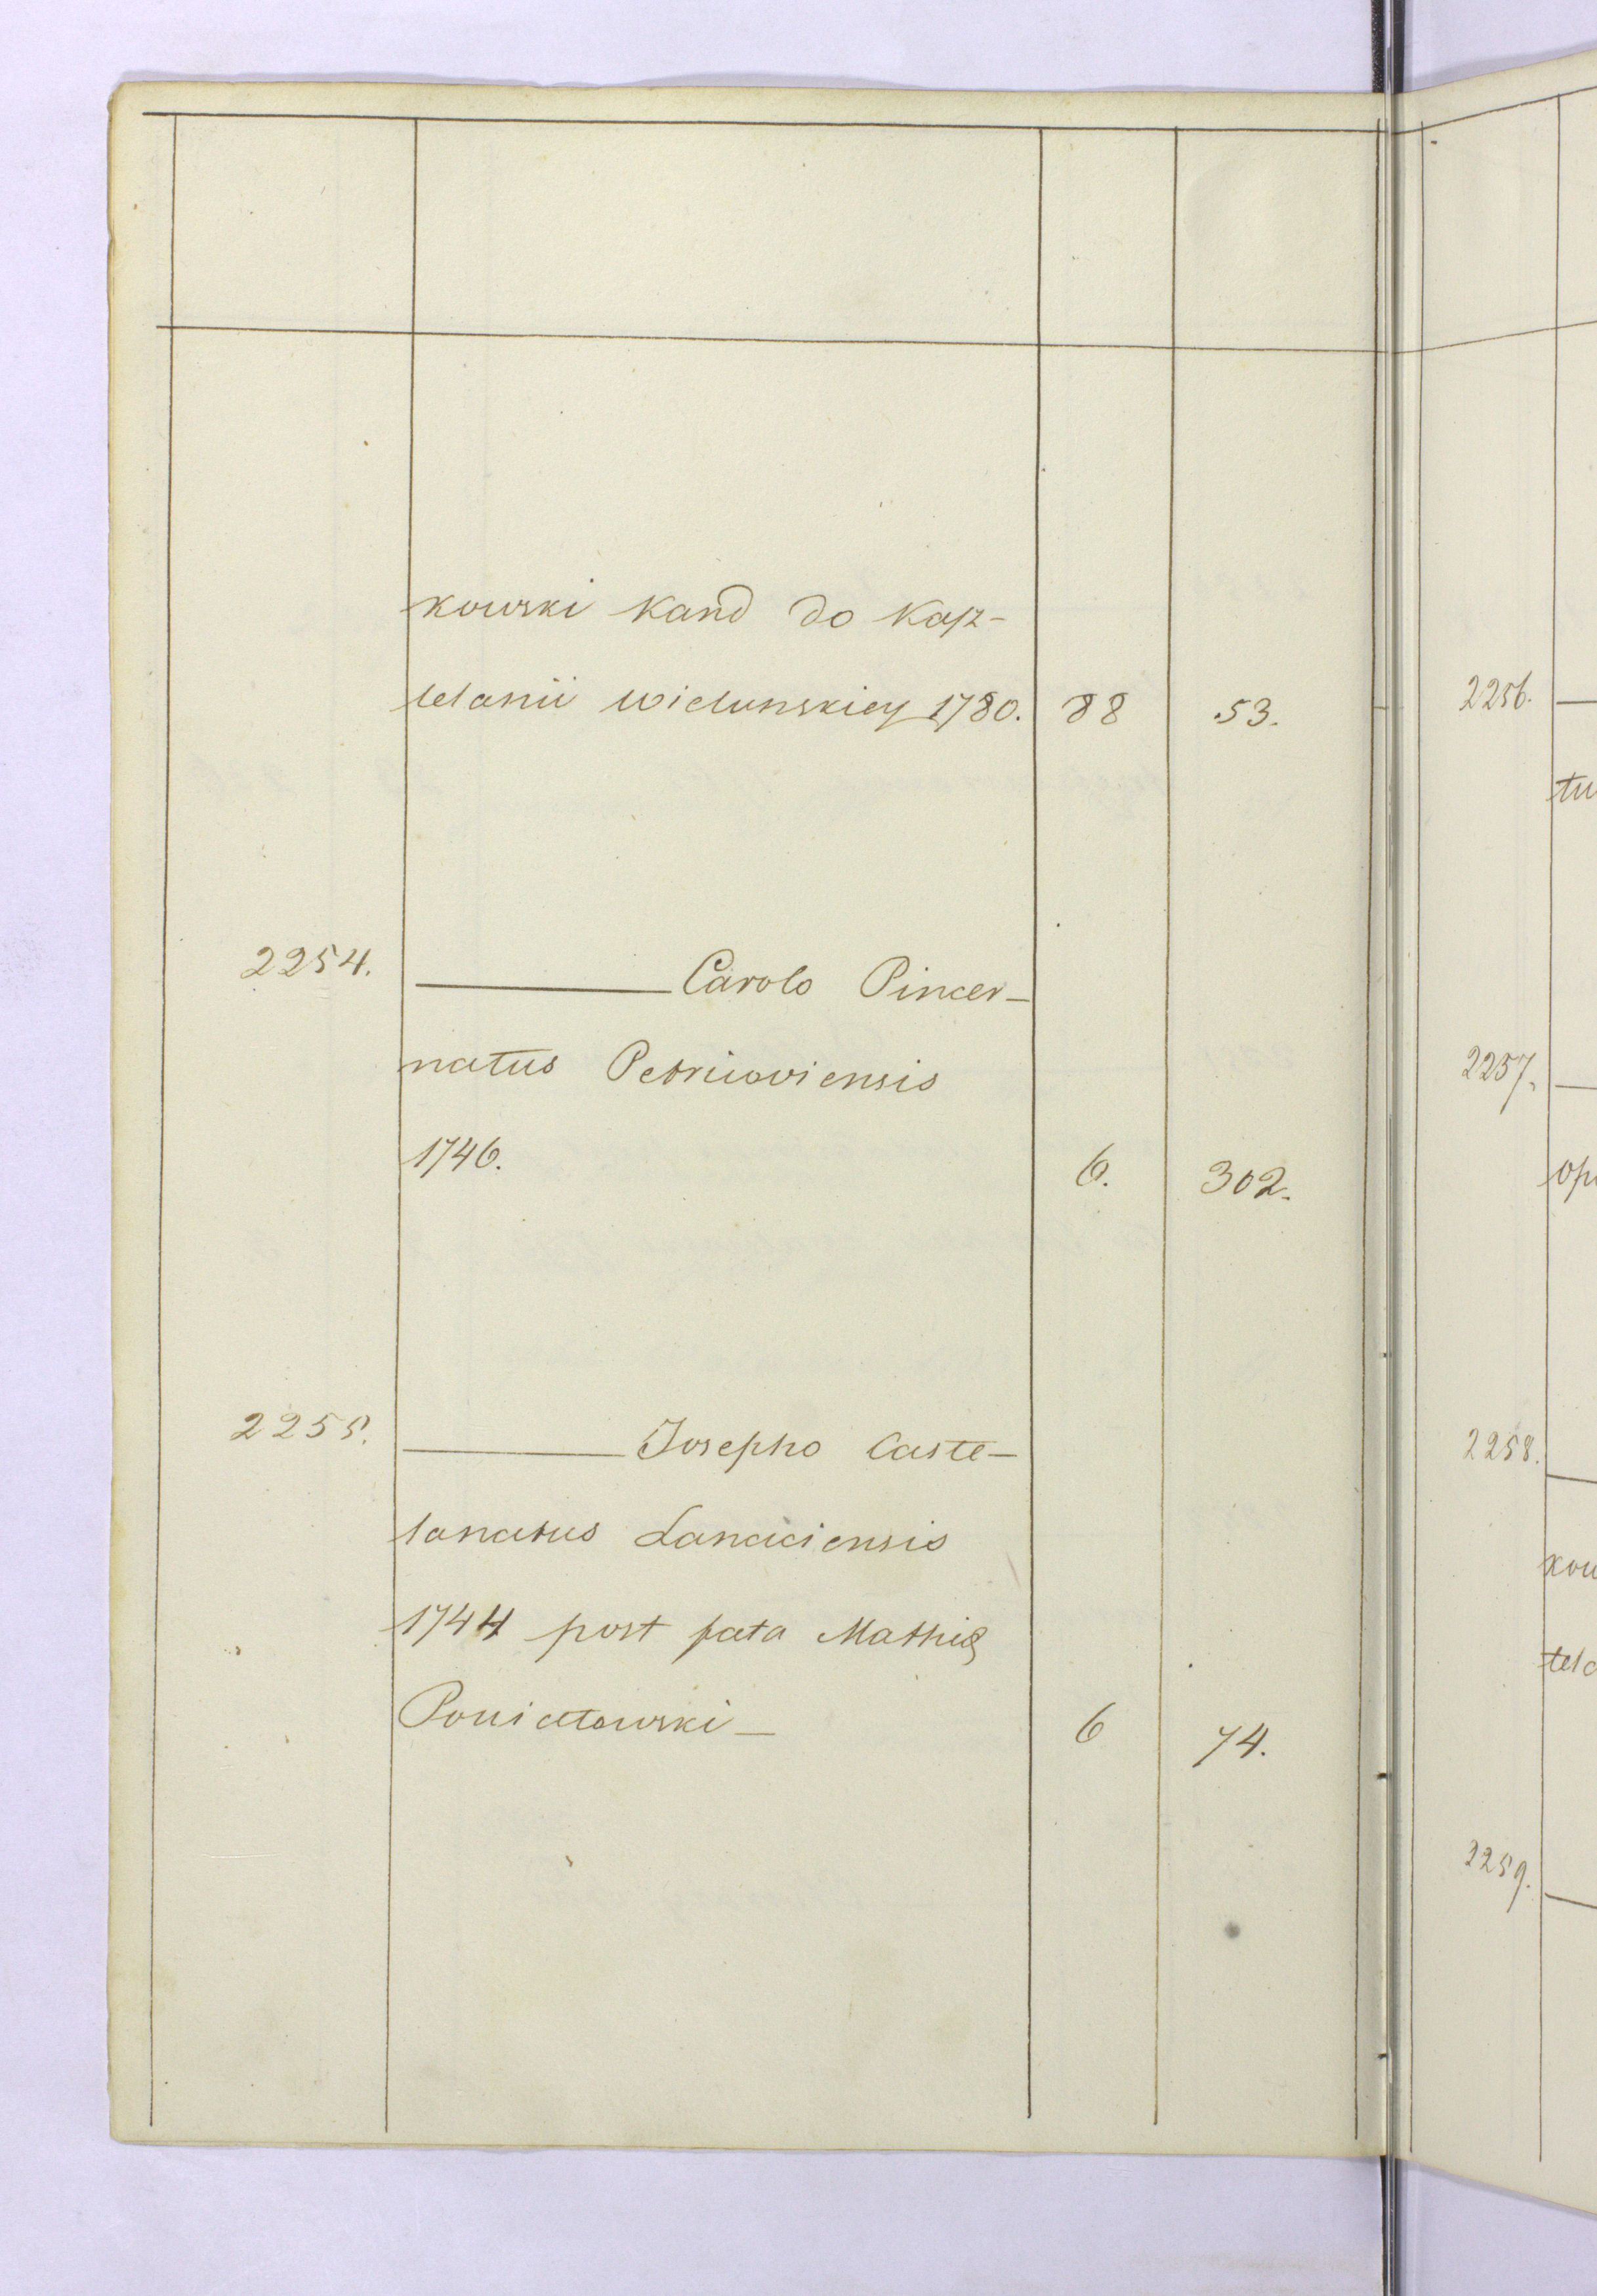 kowski Kand do Kasz-
telanii Wielunskiey 1780. 88 53.
2254. Carolo Pincer-
natus Petricoviensis
1746. 6. 302.
2255. Josepho Caste-
lanatus Lanciciensis
1744 post fata Mathiæ
Poniatowski 6 74.
2256.
tu
2257.
op
2258.
kow
tela
2259.